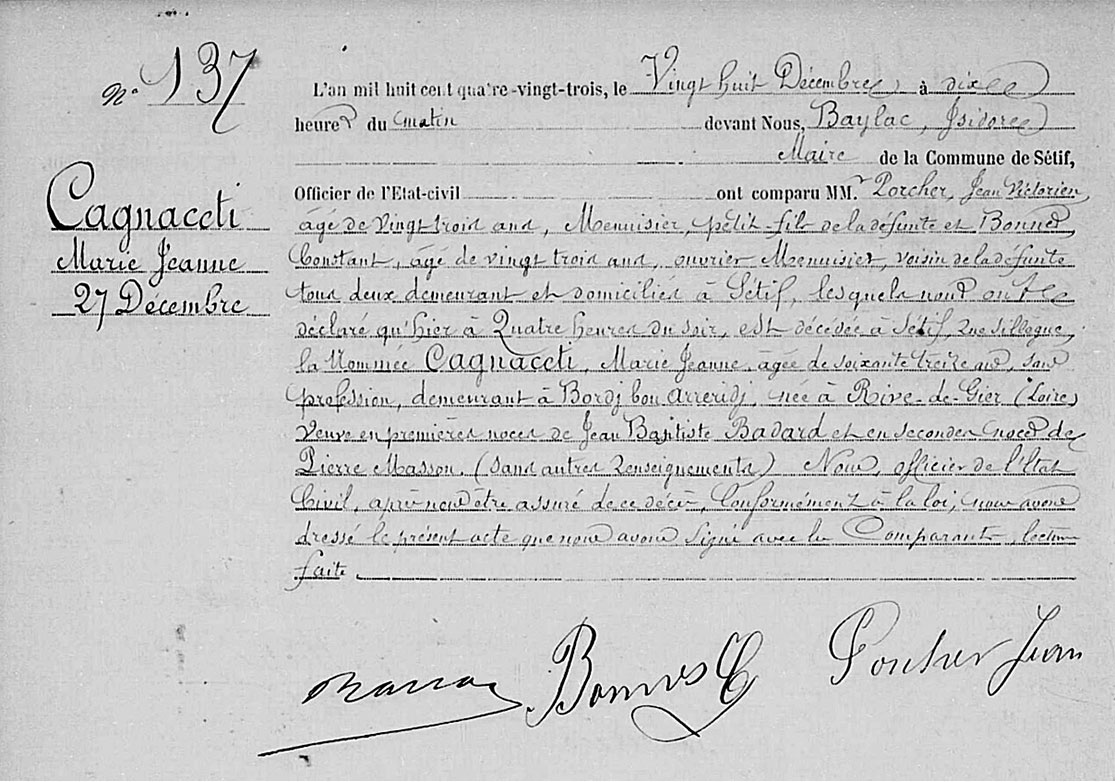 N° 137
Cagnaceti
Marie Jeanne
27 Décembre
L'an mil huit cent quatre-vingt-trois, le Vingt huit Décembre, à dix
heures du matin devant Nous, Baylac, Isidore
Maire de la Commune de Sétif,
Officier de l'Etat-civil ont comparu MM. Porcher, Jean Victorien
âgé de vingt trois ans, Menuisier, petit-fils de la défunte et Bonnes
Constant, âgé de vingt trois ans, ouvrier Menuisier, voisin de la défunte
tous deux demeurant et domiciliés à Sétif, lesquels nous ont
déclaré qu'hier à Quatre heures du soir, est décédée à Sétif, rue Sillègue,
la Nommée Cagnaceti, Marie Jeanne, âgée de soixante treize ans, sans
profession, demeurant à Bordj bou Arreridj, née à Rive-de-Gier (Loire)
Veuve en premières noces de Jean Baptiste Badard et en secondes noces de
Pierre Masson, (sans autres renseignements) Nous, officier de l'état
Civil, après nous être assuré de ce décès, Conformément à la loi, nous avons
dressé le présent acte que nous avons signé avec les Comparants, lecture
faite
Bonnes C Porcher Jean